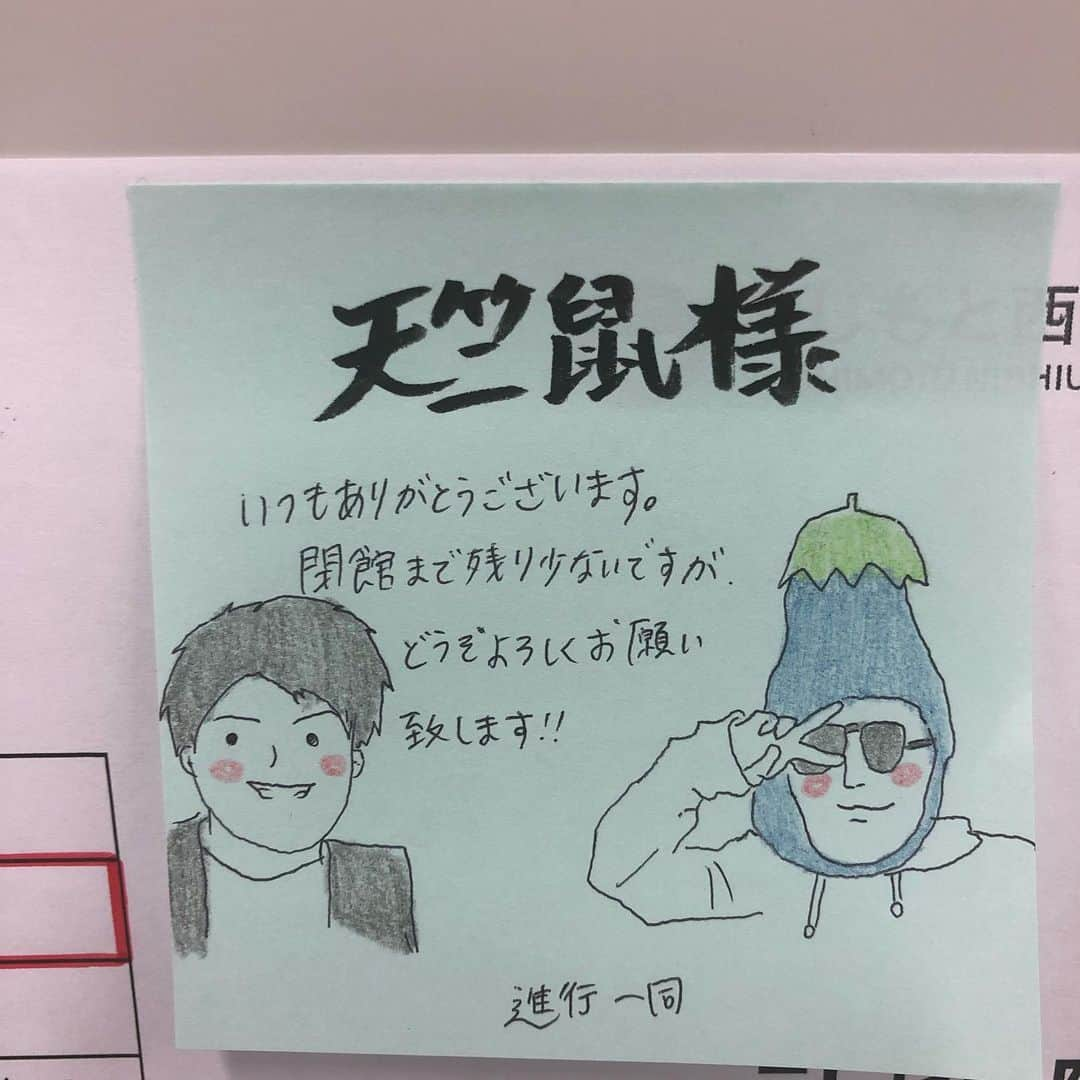 天竺鼠様
いつもありがとうございます。
閉館まで残り少ないですが、
どうぞよろしくお願い
致します!!
進行一同
西
HIU